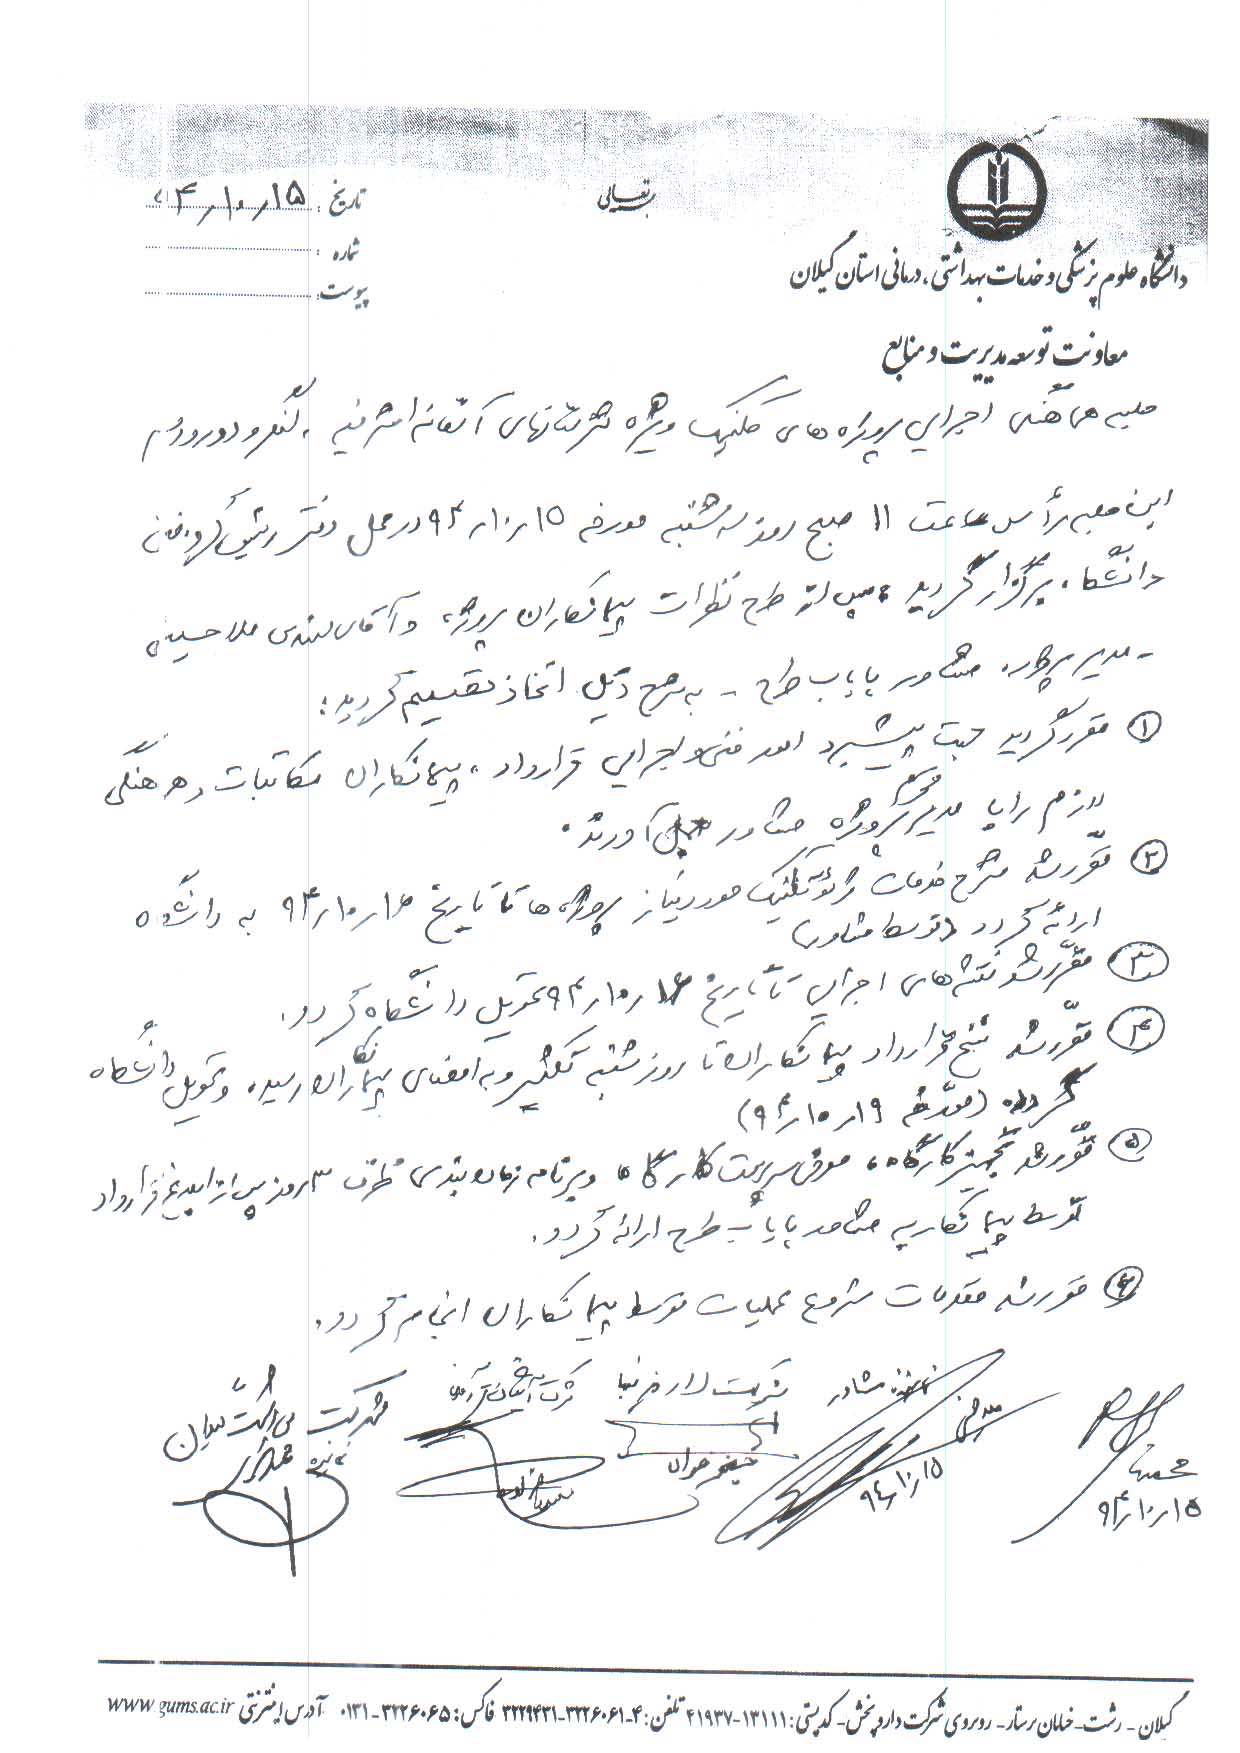 بسمه تعالی
تاریخ : ۹۴/۱۰/۱۵
شماره :
پیوست:
دانشگاه علوم پزشکی و خدمات بهداشتی ، درمانی استان گیلان
معاونت توسعه مدیریت و منابع
جلسه هماهنگی اجرای پروژه های کلینیک ویژه شهرستانهای آستانه اشرفیه ، لنگرود و رودسر
این جلسه رأس ساعت ۱۱ صبح روز سه شنبه مورخه ۹۴/۱۰/۱۵ در محل دفتر رئیس گروه فنی
دانشگاه برگزار گردید ، پس از طرح نظرات پیمانکاران پروژه و آقای مهندس ملاحسینی
- مدیر پروژه مشاور پایاب طرح - به شرح ذیل اتخاذ تصمیم گردید :
۱ مقرر گردید جهت پیشبرد امور فنی و اجرایی قرارداد ، پیمانکاران مکاتبات و هماهنگی
لازم را با مدیر محترم پروژه مشاور بعمل آورند .
۲ مقرر شد شرح خدمات ژئوتکنیک مورد نیاز پروژه ها تا تاریخ ۹۴/۱۰/۱۶ به دانشگاه
ارائه گردد (توسط مشاور)
۳ مقرر شد نقشه های اجرایی تا تاریخ ۹۴/۱۰/۱۶ تحویل دانشگاه گردد .
۴ مقرر شد نسخ قرارداد پیمانکاران تا روز شنبه تکثیر و به امضای پیمانکاران رسیده و تحویل دانشگاه
گردد (مورخه ۹۴/۱۰/۱۹)
۵ مقرر شد تجهیز کارگاه ، معرفی سرپرست کارگاه و برنامه زمان بندی ظرف ۳ روز پس از ابلاغ قرارداد
توسط پیمانکار به مشاور پایاب طرح ارائه گردد .
۶ مقرر شد مقدمات شروع عملیات توسط پیمانکاران انجام گردد .
نماینده مشاور
شرکت
شرکت
شرکت
نماینده
۹۴/۱۰/۱۵
۹۴/۱۰/۱۵
گیلان - رشت - خیابان پرستار - روبروی شرکت دارو پخش - کدپستی : ۱۳۱۱۱-۴۱۹۳۷ تلفن : ۴-۳۲۲۶۰۶۱-۳۲۲۹۴۳۱ فاکس : ۳۲۲۶۰۶۵-۰۱۳۱ آدرس اینترنتی www.gums.ac.ir